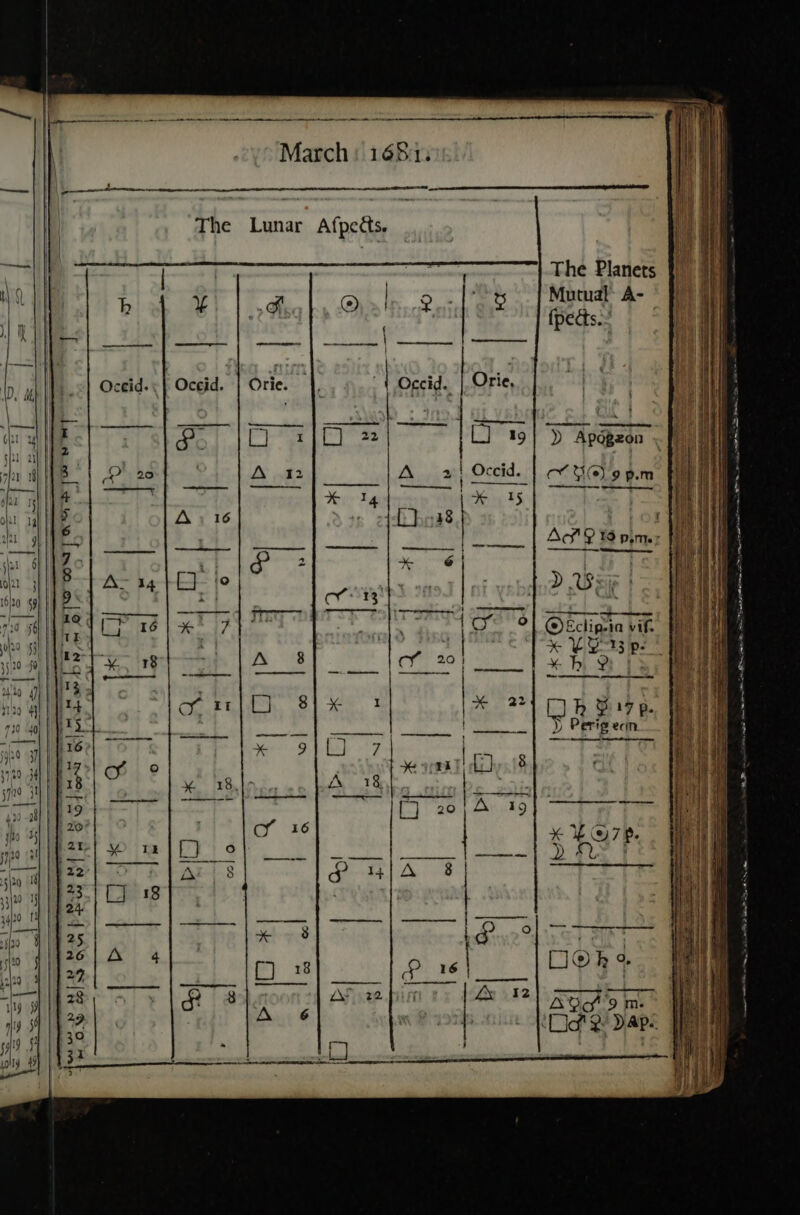 March 1681.
The Lunar Aſpects.
The Planets Mutual Aſpects.
♄ ♃ ♂ ☉ ♀ ☿
Occid. Occid. Orie. Occid. Orie.
1 ☍ □ 1 □ 22 □ 19 ☽ Apogæon
2
3 ☍ 20 △ 12 △ 2 Occid. ☌ ☿ ☉ 9 p.m
4 ⚹ 14 ⚹ 15
5 △ 16 □ 18
6 △ ♂ ♀ 10 p.m.
7 ☍ 2 ⚹ 6
8 △ 14 □ 0 ☽ ☋
9 ☌ 13
10 □ 16 ⚹ 7 ☌ 0 ☉ Eclip. in viſ.
11 ⚹ ♃ ☿ 13 p.
12 ⚹ 18 △ 8 ☌ 20 ⚹ ♄ ♀
13
14 ☌ 11 □ 8 ⚹ 1 ⚹ 22 □ ♄ ☿ 17 p.
15 ☽ Perigeon
16 ⚹ 9 □ 7
17 ☌ 0 ⚹ □ 8
18 ⚹ 18 △ 18
19 □ 20 △ 19
20 ☌ 16 ⚹ ♃ ☉ 7 p.
21 ⚹ 12 □ 0 ☽ ☊
22 △ 8 ☍ 14 △ 8
23 □ 18
24
25 ⚹ 8 ☍ 0
26 △ 4 □ ☉ ♄ 0.
27 □ 18 ☍ 16
28 ☍ 8 △ 22 △ 12 △ ☿ ♂ 9 m.
29 △ 6 □ ♂ ♀ ☽ Ap.
30
31 □